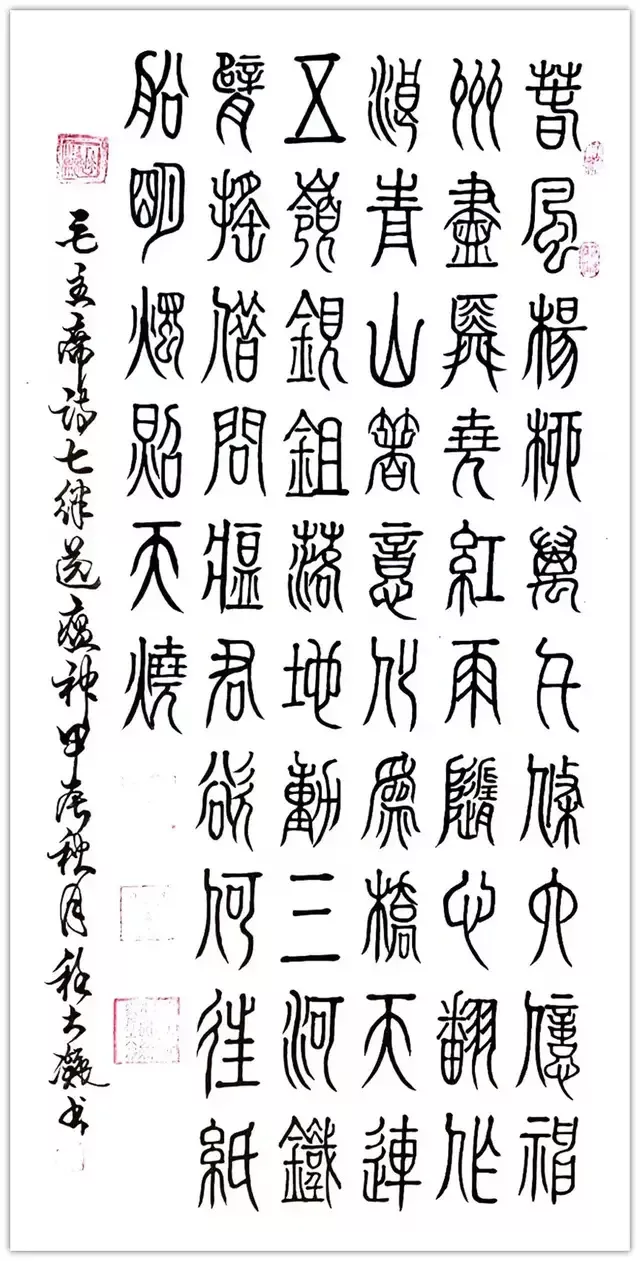 春風楊柳萬千條六億神
州盡舜堯紅雨隨心翻作
浪青山著意化爲橋天連
五嶺銀鉏落地動三河鐵
臂搖借問瘟君欲何往紙
船明燭照天燒
毛主席詩七律送瘟神甲辰秋月大書